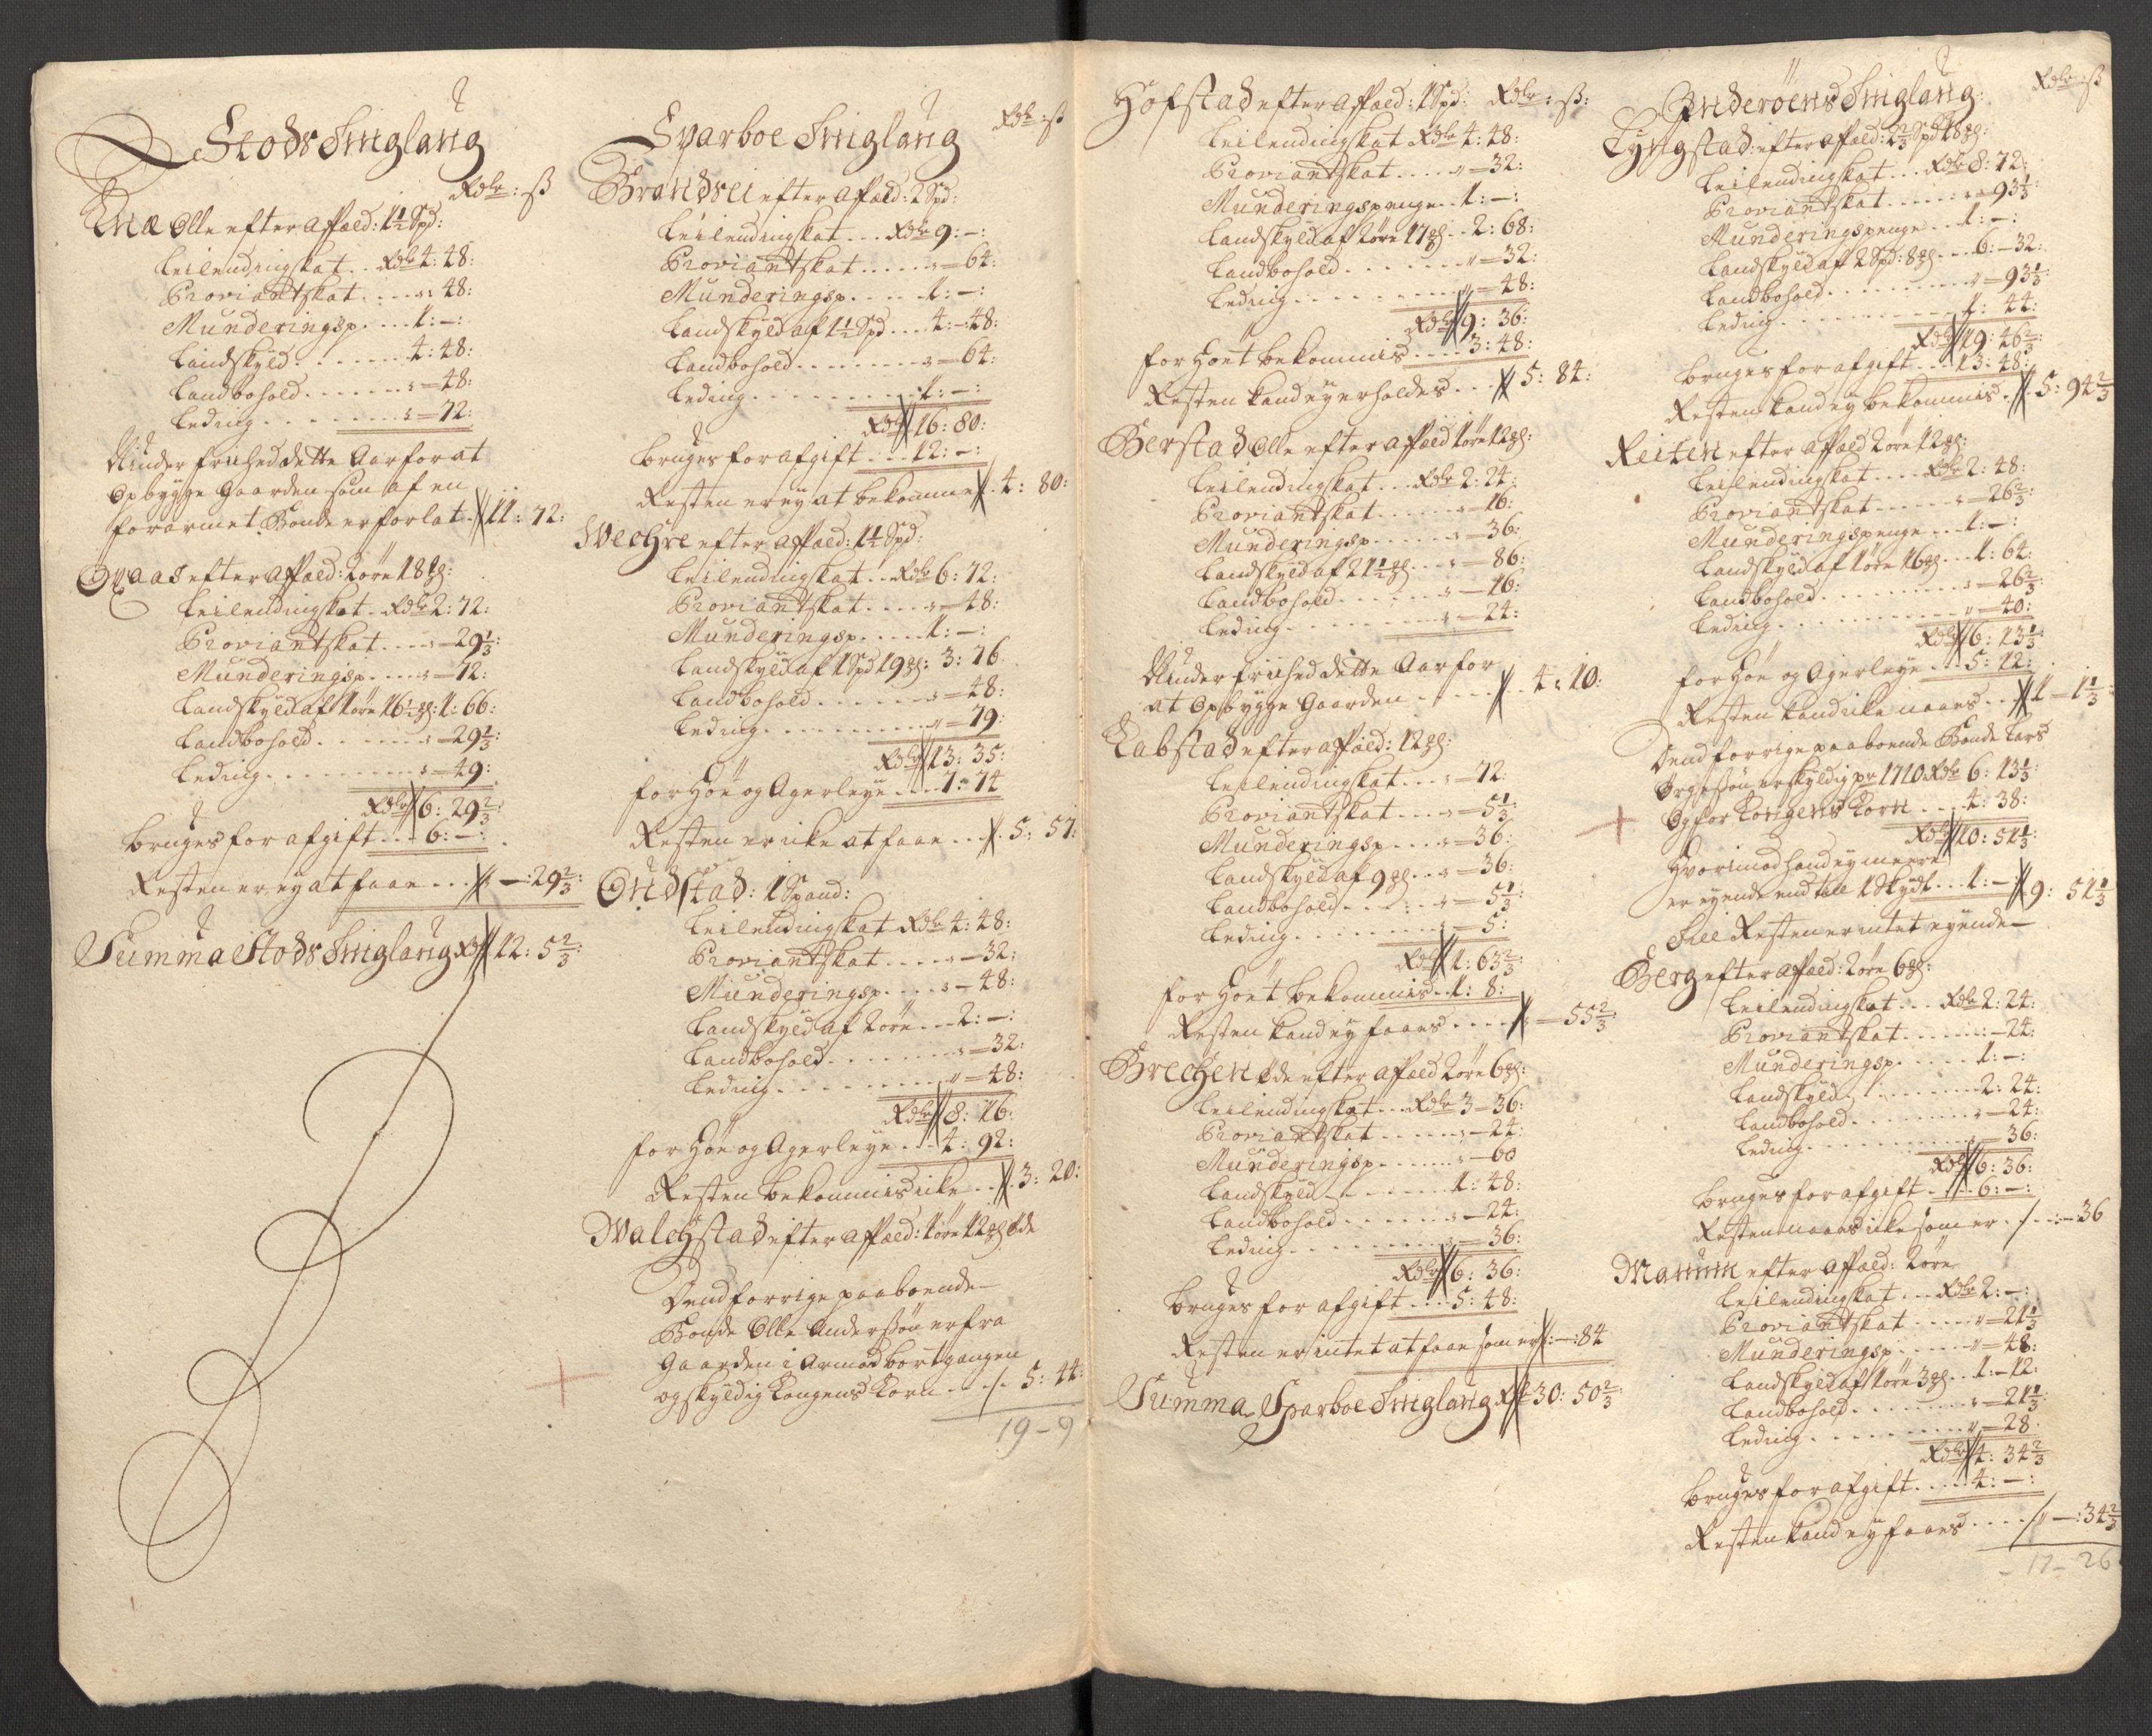 Stods Tinglaug
Rdlr : ß
Qvæ Olle efter Affæld: 1½ Spd:
Leilendingskat .. Rdlr 4: 48:
Proviantskat .... : 48:
Munderingsp .... 1: –:
Landskyld ....... 4: 48:
Landbohold ....... : – 48:
Leding ........ : – 72:
Niuder friihed dette Aar for at
Opbygge Gaarden som af en
forarmet Bonde er forlat . 11: 72:
Qvaas efter Affæld: 2 øre 18 mℓ:
Leilendingskat . Rdlr 2: 72:
Proviantskat .... : – 29⅓:
Munderingsp .... : – 72:
Landskyld af 1 øre 16½ mℓ: 1: 66:
Landbohold ....... : – 29⅓:
Leding .......... : – 49:
Rdlr 6: 29⅔:
Bruges for afgift ... 6: –:
Resten er ey at faae ... – : 29⅔:
Summa Stods Tinglaug Rdr 12: 5⅔:
Sparboe Tinglaug
Rdlr : ß
Brandsei efter Affæld: 2 Spd:
Leilendingskat ... Rdlr 9: –:
Proviantskat ...... : – 64:
Munderingsp ..... 1: –:
Landskyld af 1½ Spd .... 4: –: 48:
Landbohold ......... : – 64:
Leding .......... 1: –:
Rdlr 16: 80:
Bruges for afgift ... 12: –:
Resten er ey at bekomme . 4: 80:
Wechre efter Affæld: 1½ Spd:
Leilendingskat .. Rdlr 6: 72:
Proviantskat ..... : – 48:
Munderingsp ..... 1: –:
Landskyld af 1 Spd 19 mℓ: 3: 76
Landbohold ....... : – 48:
Leding .......... – 79:
Rdlr 13: 35:
for Høe og Agerleye ... 7: 74
Resten er icke at faae ... 5: 57:
Ondstad: 1 Spand:
Leilendingskat Rdlr 4: 48:
Proviantskat ..... : – 32:
Munderingsp .... : – 48:
Landskyld af 2 øre ... 2: –:
Landbohold ........ : – 32:
Leding .......... – 48:
Rdlr 8: 16:
for Høe og Agerleye ... 4: 92:
Resten bekommis icke ... 3: 20:
Walchstad efter Affæld: 1 øre 12 mℓ Øde
Dend forrige paaboende
Bonde Olle Anderssøn er fra
Gaarden i Armod bortgangen
og skyldig Kongens Korn .. /. 5: 44:
19 – 9
Hofstad efter Affæld: 1 Spd: Rdlr : ß:
Leilendingskat Rdlr 4: 48:
Proviantskat .... – 32:
Munderingspenge .. 1: –:
Landskyld af 2 øre 17 mℓ .. 2: 68:
Landbohold ....... – 32:
Leding .......... – 48:
Rdlr 9: 36:
for Høet bekommis .... 3: 48:
Resten kand ey erholdes ... 5: 84:
Berstad Olle efter Affæld 1 øre 12 mℓ:
Leilendingskat ... Rdlr 2: 24:
Proviantskat ...... – 16:
Munderingsp ...... – 36:
Landskyld af 21½ mℓ ... – 86:
Landbohold ....... : – 16:
Leding .......... : – 24:
Niuder friihed dette Aar for
at Opbygge Gaarden ..... 4: 10:
Labstad efter Affæld: 12 mℓ:
Leilendingskat ... : – 72:
Proviantskat .... – 5⅓:
Munderingsp .... : – 36:
Landskyld af 9 mℓ ... : – 36:
Landbohold ...... – 5⅓:
Leding ......... : – 5:
Rdlr 1: 63⅔:
for Høet bekommis .. 1: 8:
Resten kand ey faaes .... – 55⅔:
Brechen Øde efter Affæld 2 øre 6 mℓ:
Leilendingskat ... Rdlr 3 – 36:
Proviantskat ...... : – 24:
Munderingsp ...... : – 60
Landskyld ........ 1: 48:
Landbohold ....... : – 24:
Leding .......... : – 36:
Rdlr 6: 36:
Bruges for afgift .... 5: 48:
Resten er intet at faae som er : – : 84
Summa Sparboe Tinglaug Rdr 30: 50⅔:
Inderøens Tinglaug:
Rdlr : ß
Lyngstad: efter Affæld: 2⅔ Spd 18 mℓ:
Leilendingskat ... Rdlr 8: 72:
Proviantskat ..... : – 93⅓:
Munderingspenge ... 1: –:
Landskyld af 2 Spd: 8 mℓ ... 6: – 32:
Landbohold ......... – 93⅓:
Leding .......... 1: 44:
Rdlr 19: 46⅔:
Bruges for afgift ... 13: 48:
Resten kand ey bekommis . 5: 94⅔
Reiten efter Affæld 2 øre 12 mℓ:
Leilendingskat .... Rdlr 2: 48:
Proviantskat ...... : – 26⅔:
Munderingspenge ... 1: –:
Landskyld af 1 øre 16 mℓ ... 1: 64:
Landbohold ......... : – 26⅔:
Leding ........... – 40:
Rdlr 6: 13⅓:
for Høe og Agerleye ... 5: 12:
Resten kand icke naaes .. 1 – 1⅓
Dend forrige paaboende Bonde Lars
Orgessøn er skyldig pr 1710 Rdlr 6: 13⅓:
Og for Kongens Korn .... 4: 38:
Rdlr 10: 51⅓:
Hvorimod hand ey meere
er eyende end till 1 Skydt ... 1: – : 9: 51⅓
Till Resten er intet eyende –
Berg efter Affæld: 2 øre 6 mℓ:
Leilendingskat ... Rdlr 2: 24:
Proviantskat ...... : – 24:
Munderingsp ..... 1: –:
Landskyld ......... 2: 24:
Landbohold ........ : – 24:
Leding ........... – 36:
Rdlr 6: 36:
Bruges for afgift ... 6: –:
Resten naaes icke som er ./. – : – 36
Manum efter Affæld: 2 øre
Leilendingskat ... Rdlr 2: –:
Proviantskat ..... – 21⅓
Munderingsp ..... – 48:
Landskyld af 1 øre 3 mℓ .. 1: – 12:
Landbohold ........ : – 21⅓:
Leding .......... – 28
Rdlr 4: 34⅔
Bruges for afgift .... 4: –:
Resten kand ey faaes .... /. – : 34⅔
17 – 26